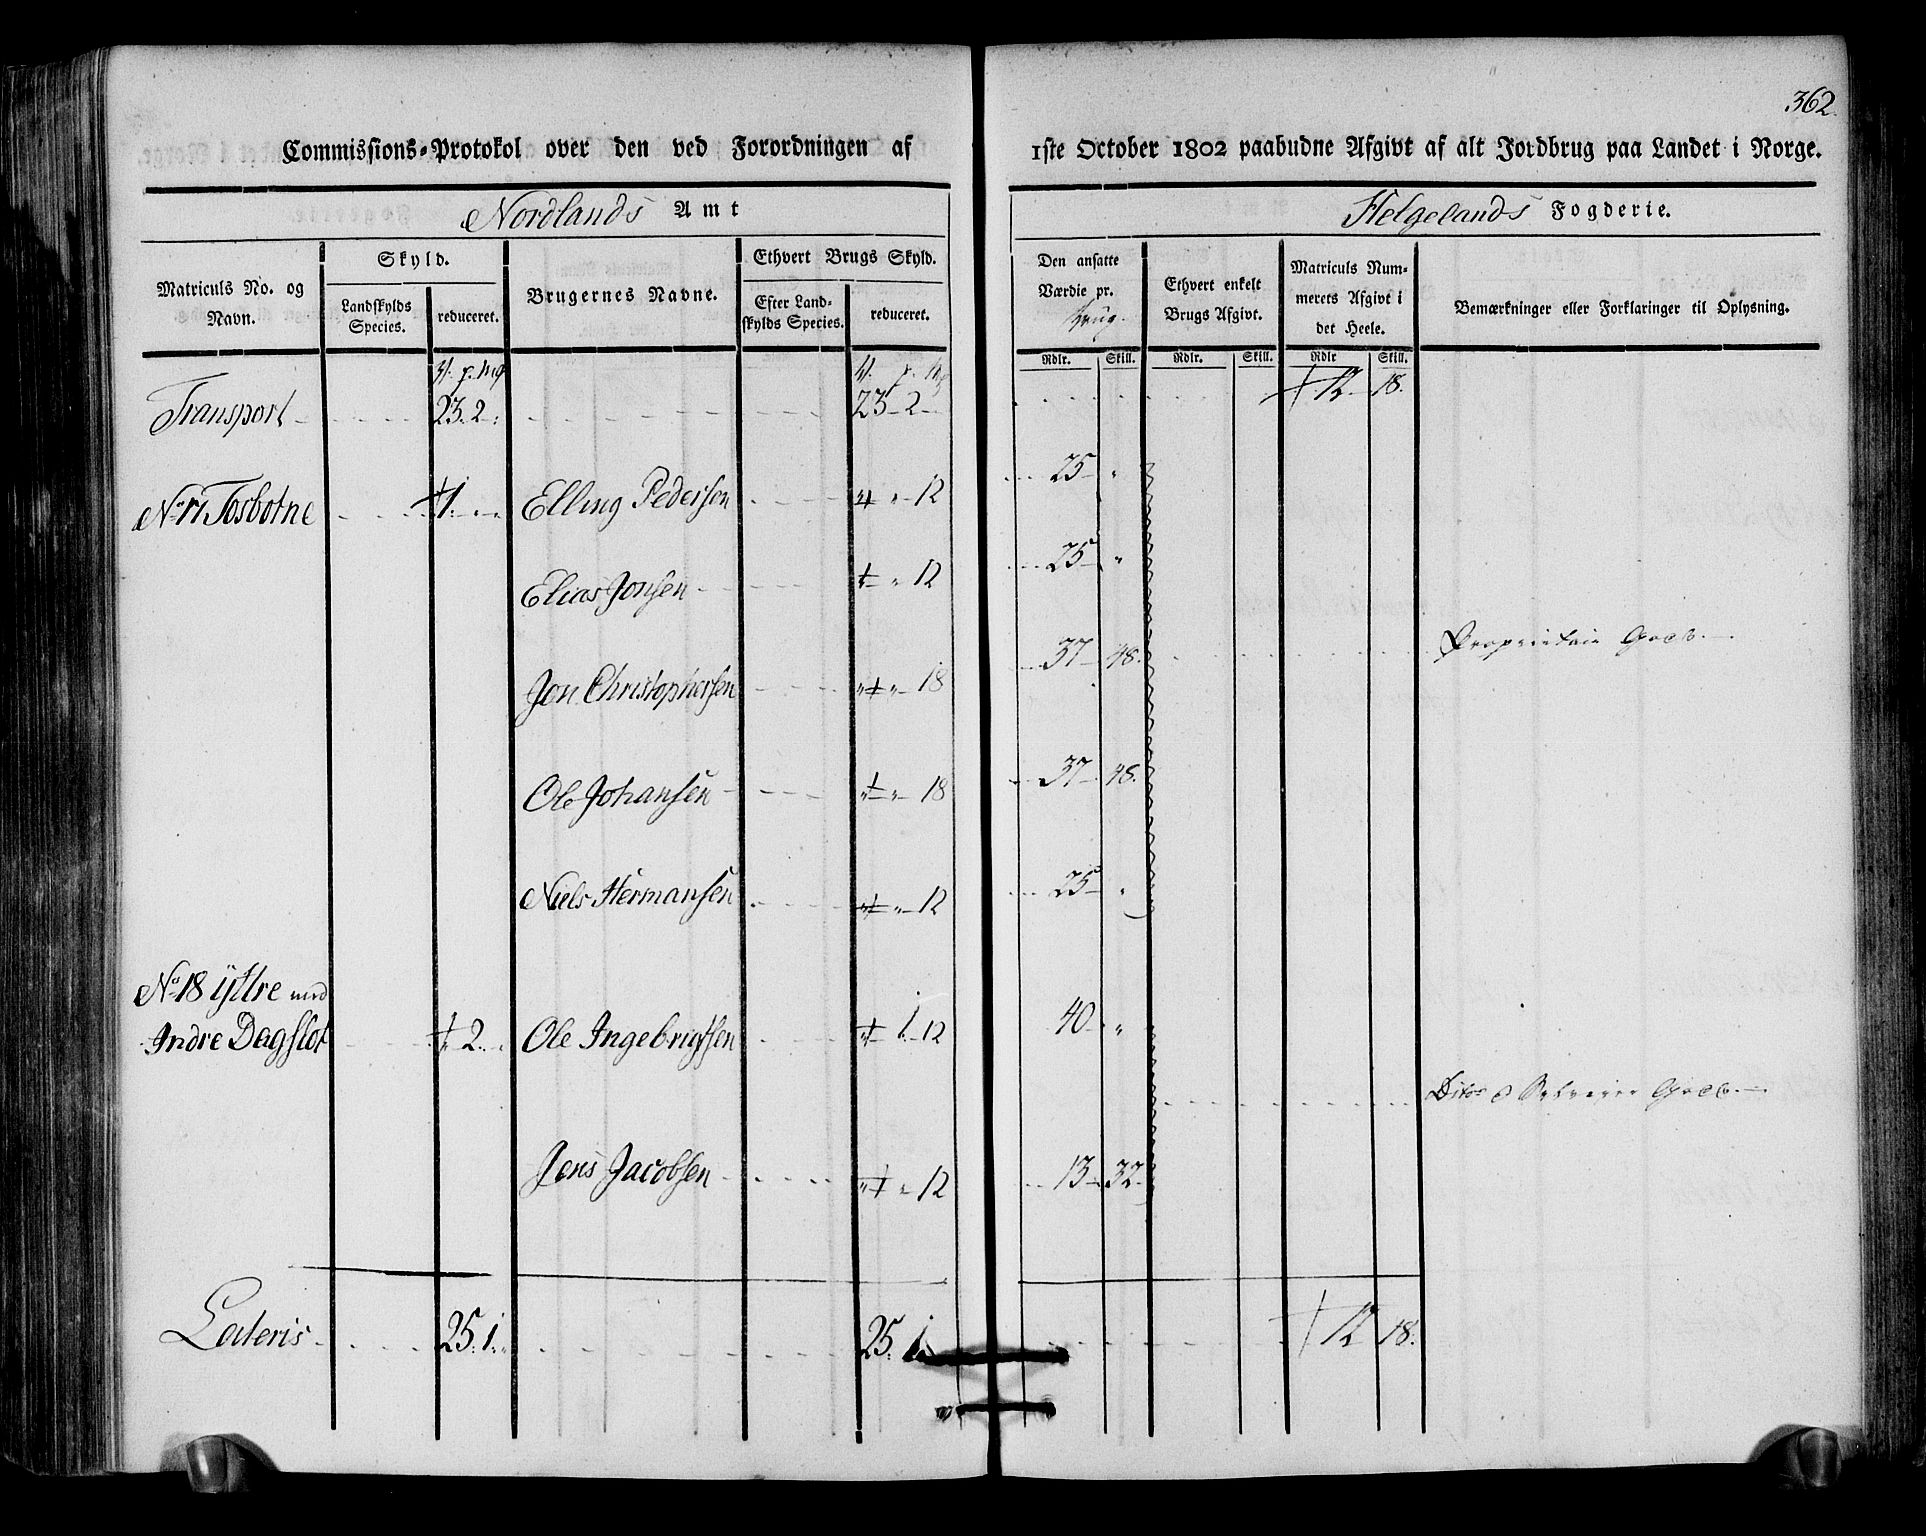 362.
Commissions-Protokol over den ved Forordningen af 1ste October 1802 paabudne Afgivt af alt Jordbrug paa Landet i Norge.
Nordlands Amt Helgelands Fogderie.
Matriculs No. og Navn.
Skyld.
Landskylds Species.
reduceret.
Brugernes Navne.
Ethvert Brugs Skyld.
Efter Landskylds Species.
reduceret.
Den ansatte Værdie pr. brug.
Ethvert enkelt Brugs Afgivt.
Matriculs Nummerets Afgivt i det Heele.
Bemærkninger eller Forklaringer til Oplysning.
Rdlr. Skill. Rdlr. Skill. Rdlr Skill.
Transport 23. 2 23 2 12 18.
No 17 Tosbotne 1 Elling Pedersen 12 25 "
Elias Jonsen 12 25 "
Jon Christophersen 18 37 48. Proprietair Gods.
Ole Johansen 18 37 48.
Niels Hermansen 12 25 "
No 18 ÿttre med
Indre Dagslot 2 Ole Ingebrigtsen 1 12 40 "
Ditos Gods.
Jens Jacobsen 12 13 32
Lateris 25. 1 25. 1 12 18.